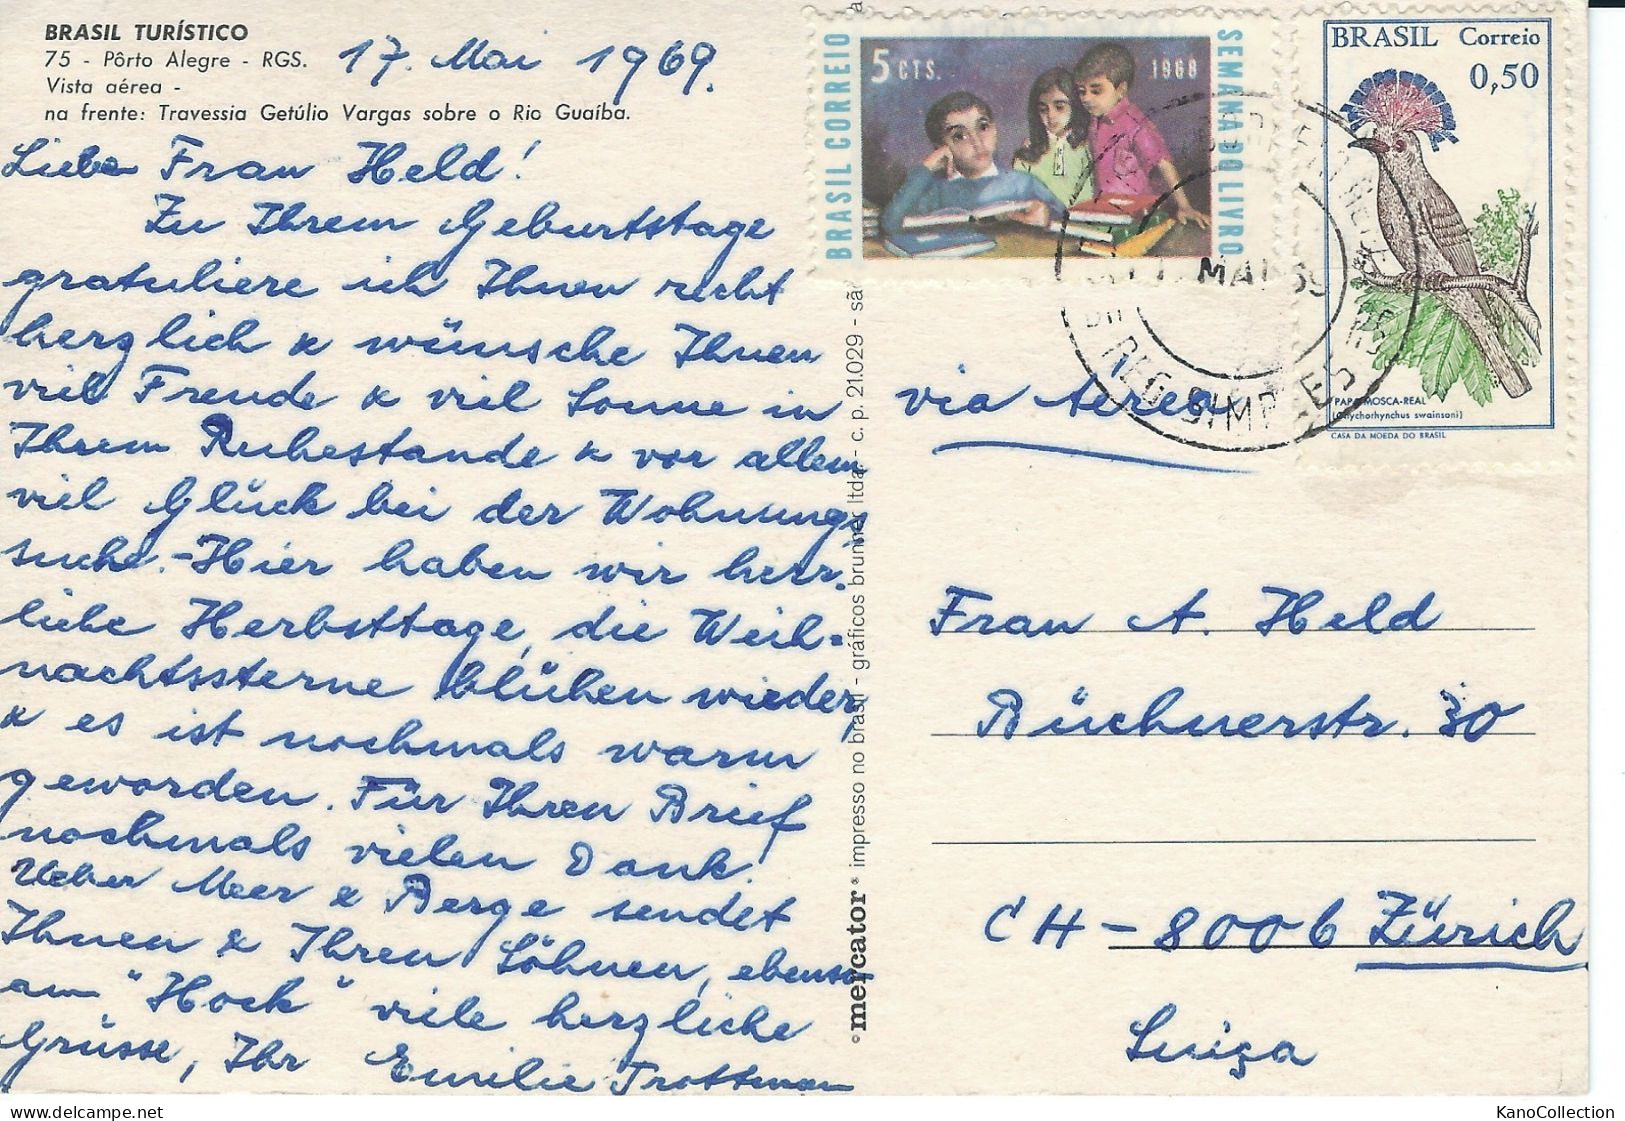 BRASIL TURÍSTICO
75 - Pôrto Alegre - RGS.
Vista aérea -
na frente: Travessia Getúlio Vargas sobre o Rio Guaíba.
17. Mai 1969.
Liebe Frau Held!
Zu Ihrem Geburtstage
gratuliere ich Ihnen recht
herzlich & wünsche Ihnen
viel Freude & viel Sonne in
Ihrem Ruhestande & vor allem
viel Glück bei der Wohnungs
suche. - Hier haben wir herr-
liche Herbsttage, die Weih=
nachtssterne blühen wieder,
& es ist nochmals warm
geworden. Für Ihren Brief
nochmals vielen Dank.
Ueber Meer & Berge sendet
Ihnen & Ihren Söhnen, ebenso
am "Hock" viele herzliche
Grüsse, Ihr Emilie Trottman
°mercator® impresso no brasil - gráficos brunner ltda - c. p. 21.029 - sã
BRASIL CORREIO
5 CTS.
1968
SEMANA DO LIVRO
BRASIL Correio
0,50
PAPA-MOSCA-REAL
(Onychorhynchus swainsoni)
CASA DA MOEDA DO BRASIL
MAI 69
REG. SIMPLES
via Aerea
Frau A. Held
Büchnerstr. 30
CH - 8006 Zürich
Suiza
KanoCollection